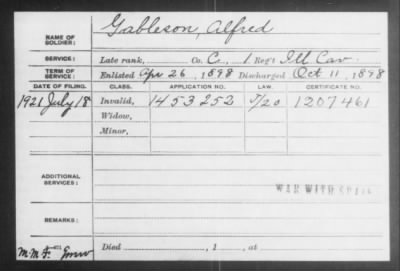 Gableson, Alfred
NAME OF SOLDIER:
SERVICE: Late rank, Co. C, 1 Reg't Ill Cav.
TERM OF SERVICE: Enlisted Apr 26, 1898 Discharged Oct 11, 1898
DATE OF FILING. CLASS. APPLICATION NO. LAW. CERTIFICATE NO.
1921 July 18 Invalid, 1453252 J/20 1207461
Widow,
Minor,
ADDITIONAL SERVICES:
WAR WITH SPAIN
REMARKS:
Died , 1 , at